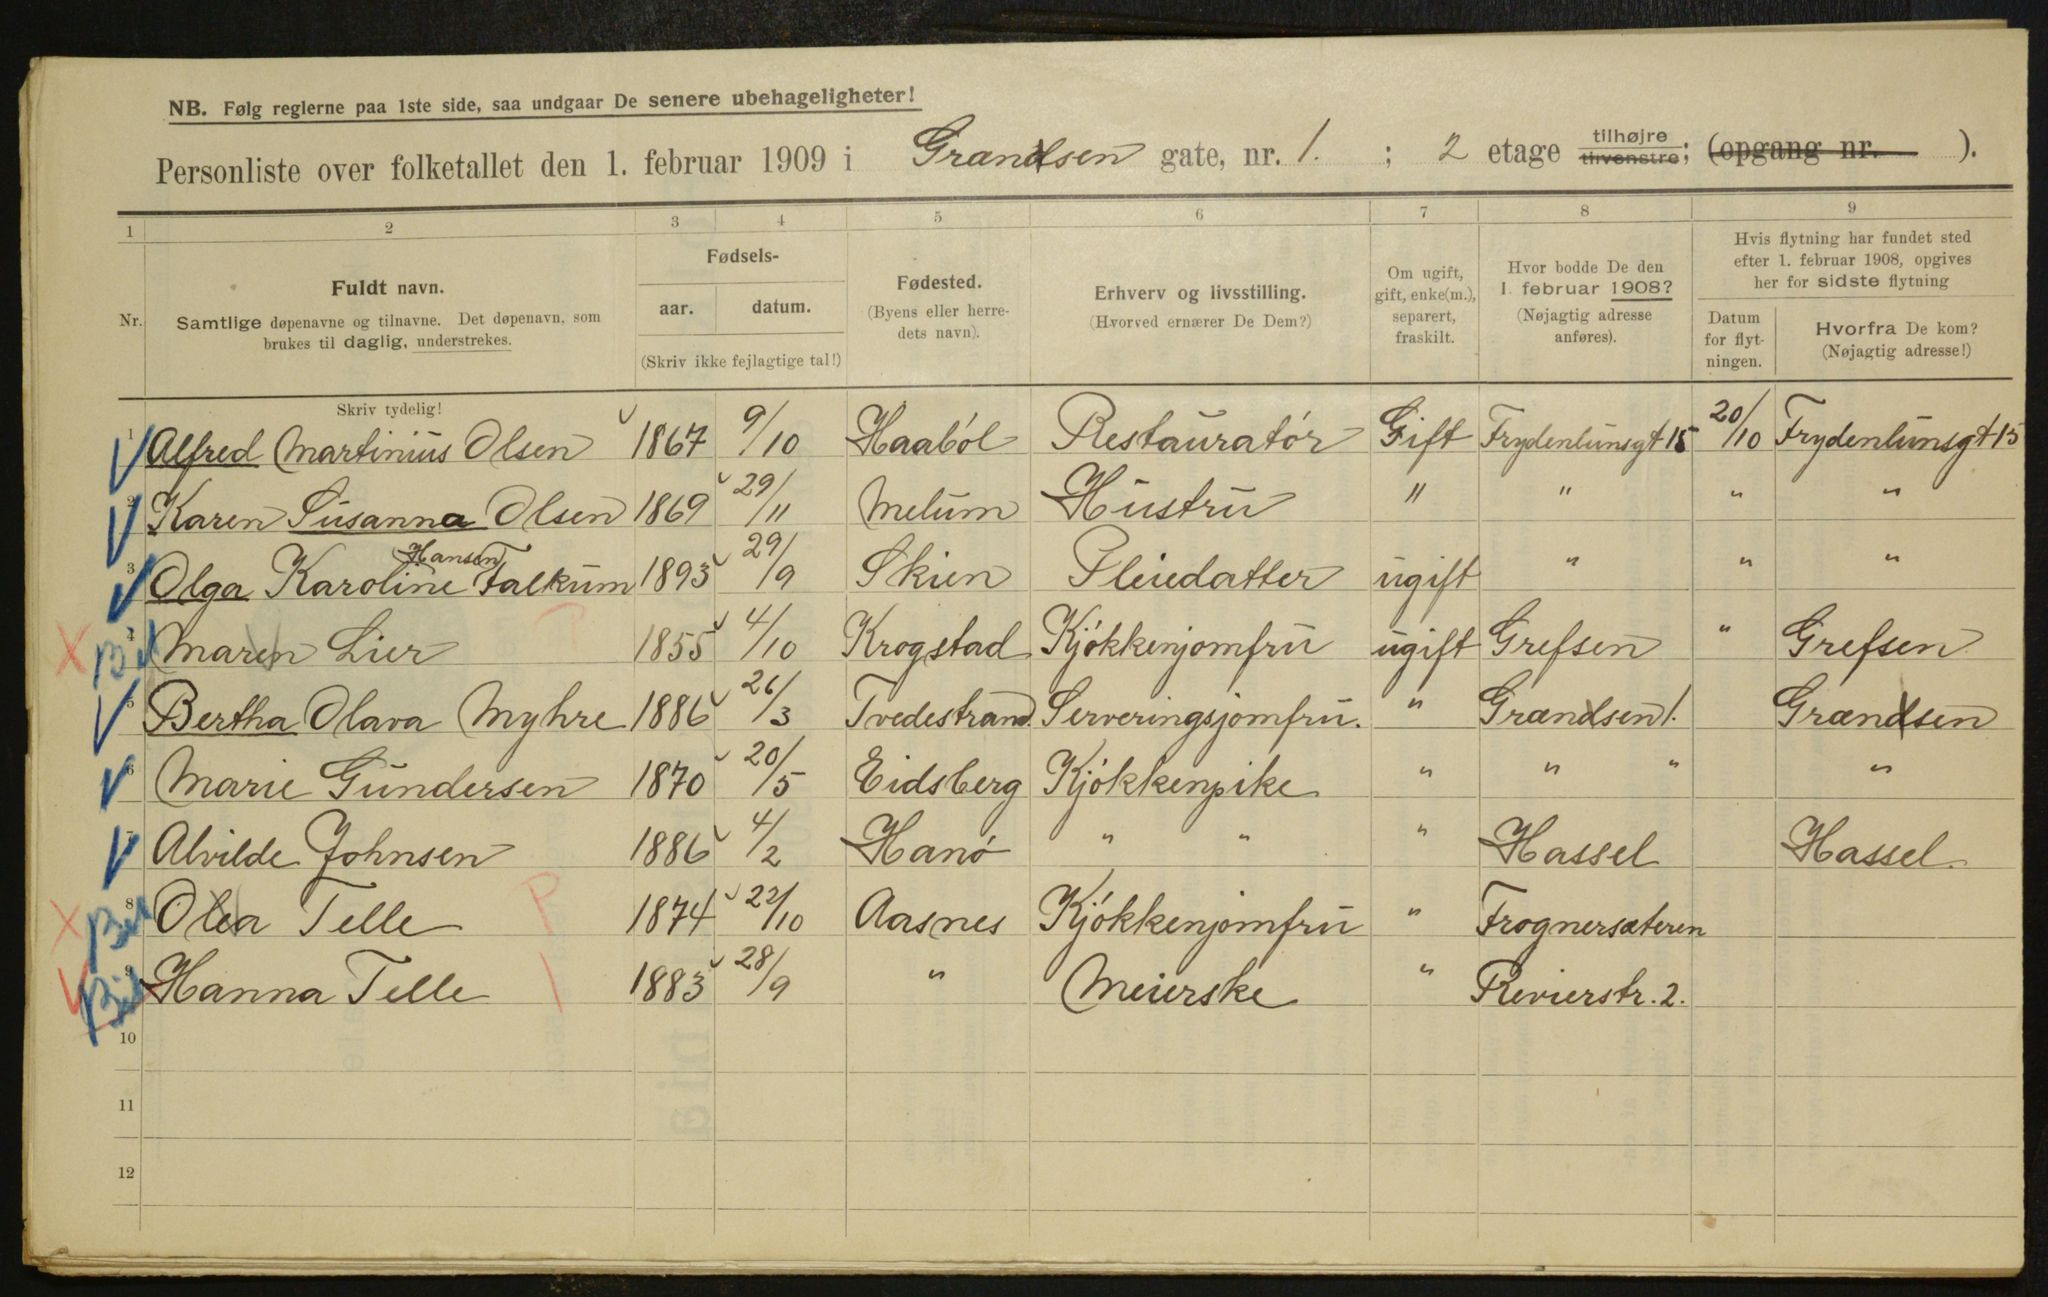 NB. Følg reglerne paa 1ste side, saa undgaar De senere ubehageligheter!
Personliste over folketallet den 1. februar 1909 i Grændsen gate, nr. 1. ; 2 etage tilhøjre tilvenstre; (opgang nr. ).
1 2 3 4 5 6 7 8 9
Nr.
Fuldt navn.
Samtlige døpenavne og tilnavne. Det døpenavn, som
brukes til daglig, understrekes.
Skriv tydelig!
Fødsels-
aar. datum.
(Skriv ikke fejlagtige tal!)
Fødested.
(Byens eller herre-
dets navn).
Erhverv og livsstilling.
(Hvorved ernærer De Dem?)
Om ugift,
gift, enke(m.),
separert,
fraskilt.
Hvor bodde De den
1. februar 1908?
(Nøjagtig adresse
anføres).
Hvis flytning har fundet sted
efter 1. februar 1908, opgives
her for sidste flytning
Datum
for flyt-
ningen.
Hvorfra De kom?
(Nøjagtig adresse!)
1 Alfred Martinius Olsen 1867 9/10 Haaböl Restauratör Gift Frydenlunsgt 15 20/10 Frydenlunsgt 15
2 Karen Susanna Olsen 1869 29/11 Melum Hustru " " " "
3 Olga Karoline Hansen Falkum 1893 29/9 Skien Pleiedatter ugift " " "
4 Maren Lier 1855 4/10 Krogstad Kjökkenjomfru ugift Grefsen " Grefsen
5 Bertha Olava Myhre 1886 26/3 Tvedestrand Serveringsjomfru. " Grændsen 1. Grændsen
6 Marie Gundersen 1870 20/5 Eidsberg Kjökkenpike " " " "
7 Alvilde Johnsen 1886 4/2 Hanö " " " Hassel Hassel
8 Olea Telle P 1874 22/10 Aasnes Kjökkenjomfru " Frognersæteren
9 Hanna Telle 1883 28/9 " Meierske " Revierstr. 2.
10
11
12